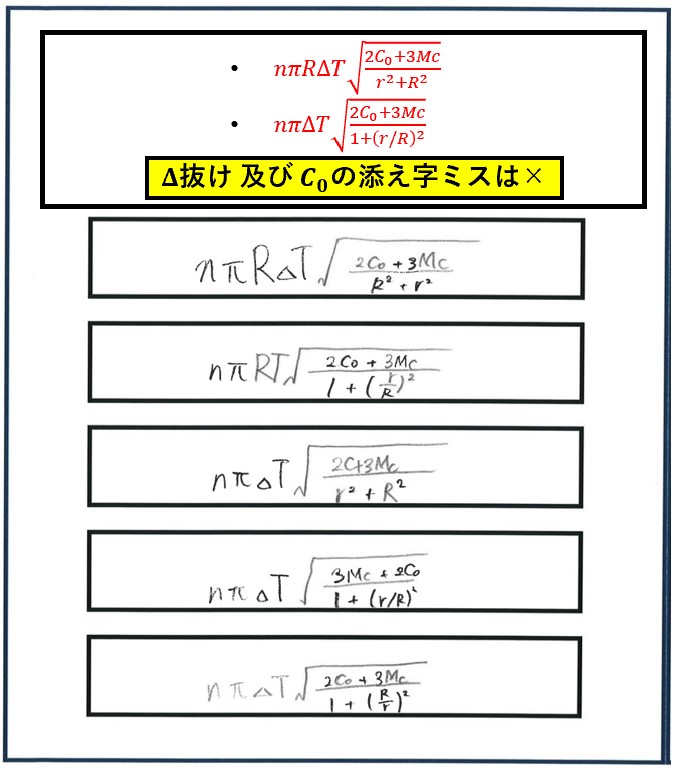 • nπRΔT√((2C₀+3Mc)/(r²+R²))
• nπΔT√((2C₀+3Mc)/(1+(r/R)²))
Δ抜け 及び C₀の添え字ミスは×
nπRΔT√((2C₀+3Mc)/(R²+r²))
nπRT√((2C₀+3Mc)/(1+(r/R)²))
nπΔT√((2C+3Mc)/(r²+R²))
nπΔT√((3Mc+2C₀)/(1+(r/R)²))
nπΔT√((2C₀+3Mc)/(1+(R/r)²))